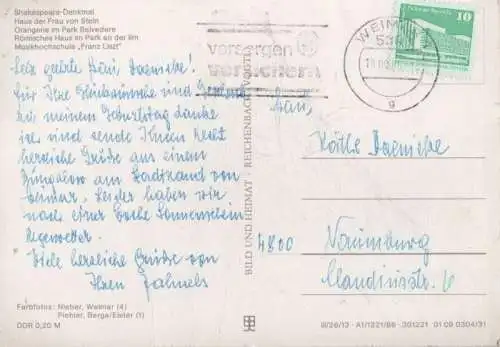 Shakespeare-Denkmal
Haus der Frau von Stein
Orangerie im Park Belvedere
Römisches Haus im Park an der Ilm
Musikhochschule „Franz Liszt"
Sehr geehrte Frau
für Ihre Glückwünsche und
zu meinem Geburtstag danke
ich und sende Ihnen recht
herzliche Grüße aus einem
Bungalow am Stadtrand von
Weimar. Leider haben wir
nach einer Woche Sonnenschein
Regenwetter.
Viele herzliche Grüße von
Ihren
Farbfotos: Nieber, Weimar (4)
Pichler, Berga/Elster (1)
DDR 0,20 M
BILD UND HEIMAT · REICHENBACH (VOGTL)
vorsorgen
versichern
WEIMAR
g
10
Frau,
Käthe
4800 Naumburg
Claudiusstr. 6
III/26/13 · A1/1221/86 301221 01 09 0304/31